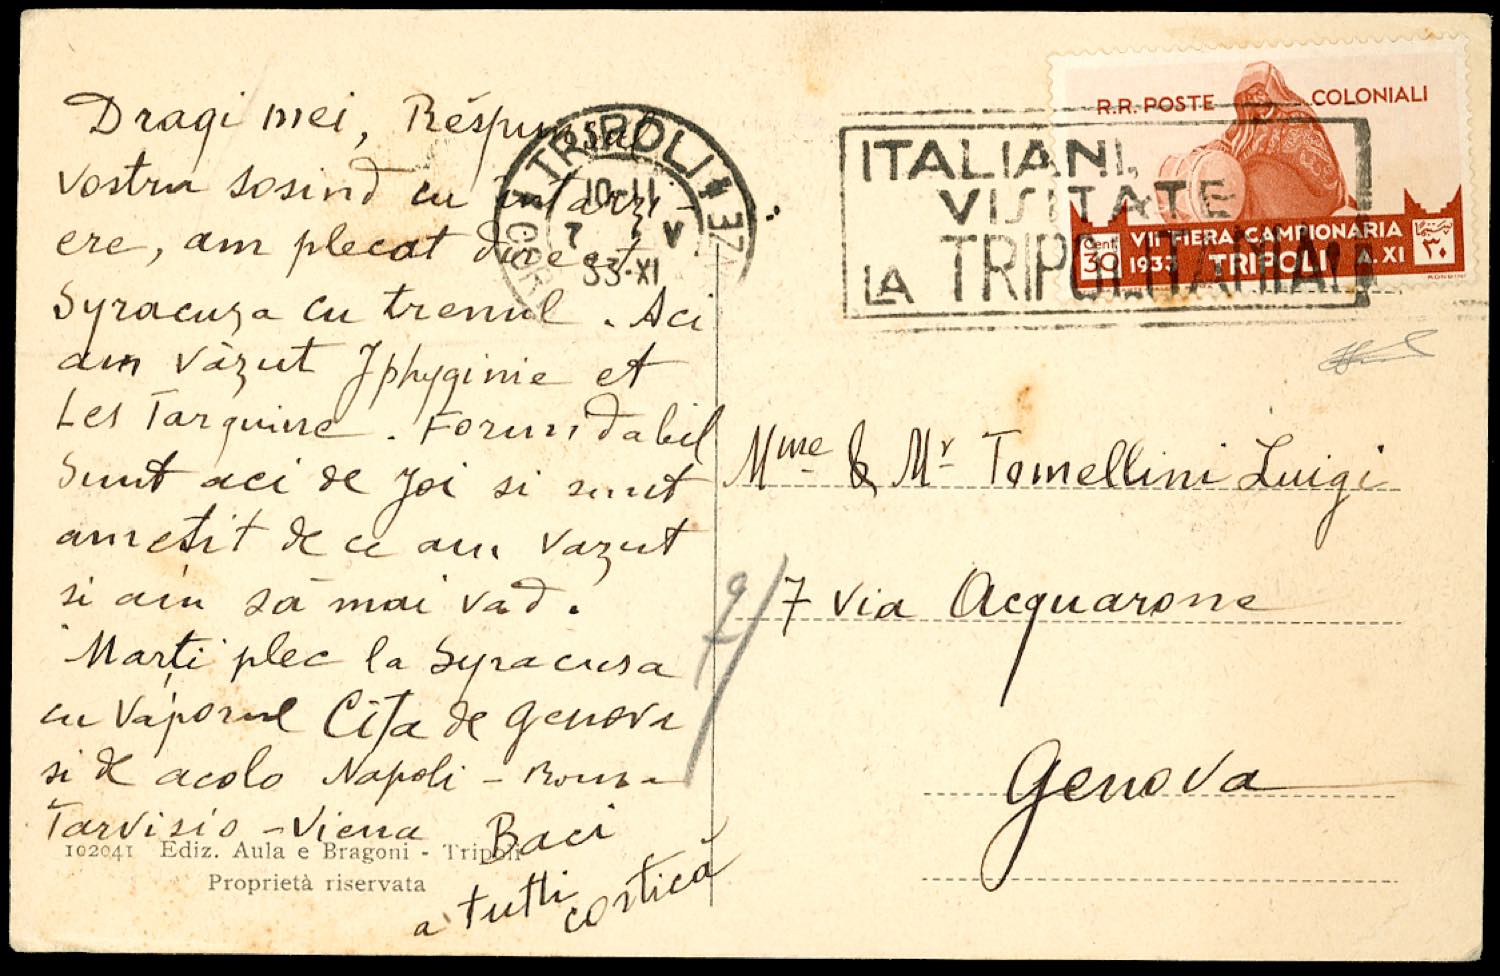 Dragi mei, Răspunsul
vostru sosind cu intarzi-
ere, am plecat direct
Syracuza cu trenul. Aci
am văzut Iphyginie et
Les Tarquine. Formidabil
sunt aci de joi si sunt
ametit de ce am vazut
si am să mai vad.
Marți plec la Syracusa
cu vaporul Cita de Genova
si de acolo Napoli - Roma
Tarvisio - Viena Baci
a tutti
costică
102041 Ediz. Aula e Bragoni - Tripoli
Proprietà riservata
TRIPOLI
10-11
7 V
33·XI
ITALIANI,
VISITATE
LA TRIPOLITANIA!
R.R. POSTE COLONIALI
Cent.
30
VII FIERA CAMPIONARIA
1933 TRIPOLI A. XI
٣٠
MONDINI
Mme & Mr Tomellini Luigi
7 via Acquarone
Genova